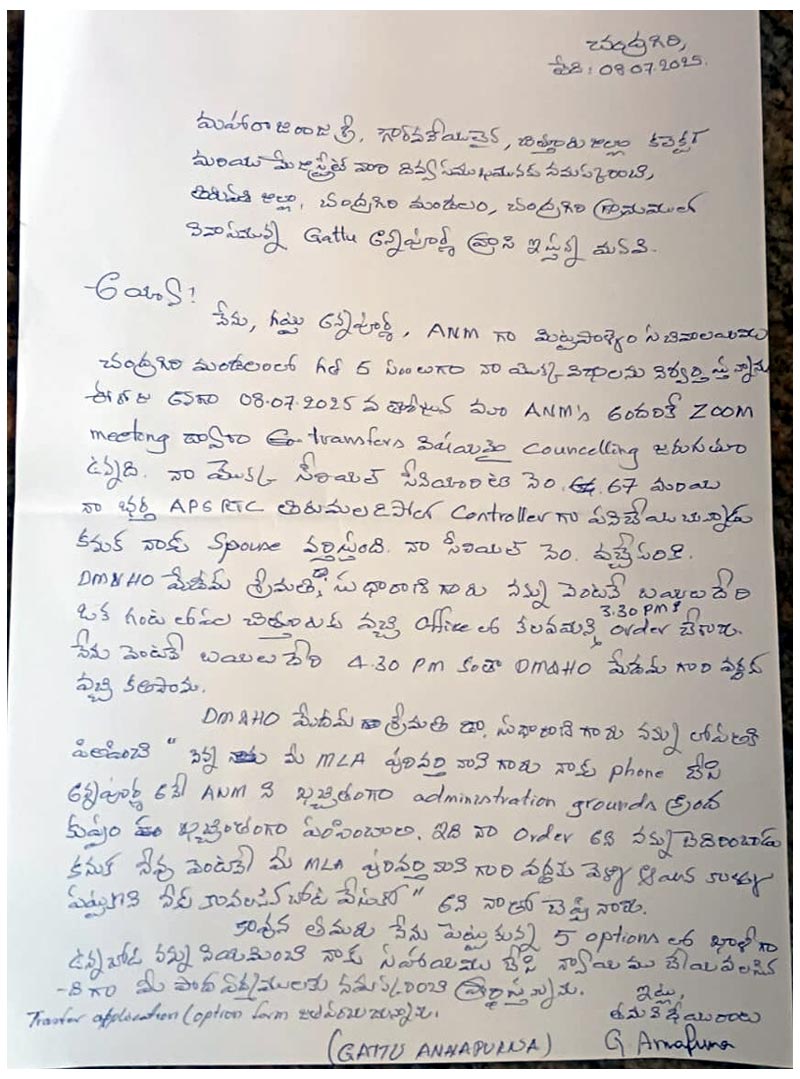 చంద్రగిరి,
తేది: 08.07.2025.
మహారాజరాజశ్రీ, గౌరవనీయులైన, చిత్తూరు జిల్లా కలెక్టర్
మరియు మేజిస్ట్రేట్ వారి దివ్యసముఖమునకు నమస్కరించి,
తిరుపతి జిల్లా, చంద్రగిరి మండలం, చంద్రగిరి గ్రామములో
నివాసమున్న Gattu అన్నపూర్ణ వ్రాసి ఇస్తున్న మనవి.
అయ్యా!
నేను, గట్టు అన్నపూర్ణ, ANM గా మిట్టపాళ్యెం సచివాలయము
చంద్రగిరి మండలంలో గత 5 సం॥లుగా నా యొక్క విధులను నిర్వర్తిస్తున్నాను
ఈరోజు అనగా 08.07.2025 వ తారీఖున మా ANM's అందరికీ ZOOM
meeting ద్వారా transfers విషయమై Councelling జరుగుతూ
ఉన్నది. నా యొక్క సీరియల్ సీనియారిటి నెం. 67 మరియు
నా భర్త APSRTC తిరుమల డిపోలో Controller గా పనిచేయుచున్నాడు
కనుక నాకు Spouse వర్తిస్తుంది. నా సీరియల్ నెం. వచ్చేసరికి.
DM&HO మేడమ్ శ్రీమతి డా, సుధారాణి గారు నన్ను వెంటనే బయలుదేరి
ఒక గంట లోపల చిత్తూరుకు వచ్చి Office లో కలవమని 3.30 PM కి order వేశారు.
నేను వెంటనే బయలుదేరి 4.30 PM కంతా DM&HO మేడమ్ గారి వద్దకు
వచ్చి కలిసాను.
DM&HO మేడమ్ శ్రీమతి డా, సుధారాణి గారు నన్ను లోపలికి
పిలిపించి " నిన్న మీ MLA పులివర్తి నాని గారు నాకు phone చేసి
అన్నపూర్ణ అనే ANM ని ఖచ్చితంగా administration grounds క్రింద
కుప్పం కు ఖచ్చితంగా పంపించాలి. ఇది నా order అని నన్ను బెదిరించాడు
కనుక నీవు వెంటనే మీ MLA పులివర్తి నాని గారి వద్దకు వెళ్ళి ఆయన కాళ్ళు
పట్టుకొని నీకు కావలసినచోట వేసుకో " అని నాతో చెప్పినారు.
కావున తమరు నేను పెట్టుకున్న 5 options లో ఖాళీగా
ఉన్నచోట నన్ను నియమించి నాకు సహాయము చేసి న్యాయము చేయవలసిన
-దిగా మీ పాదపద్మములకు నమస్కరించి ప్రార్థిస్తున్నాను.
ఇట్లు,
Tranfer application/option form జతపరుచుచున్నాను.
తమ విధేయురాలు
(GATTU ANNAPURNA)
G. Annapurna